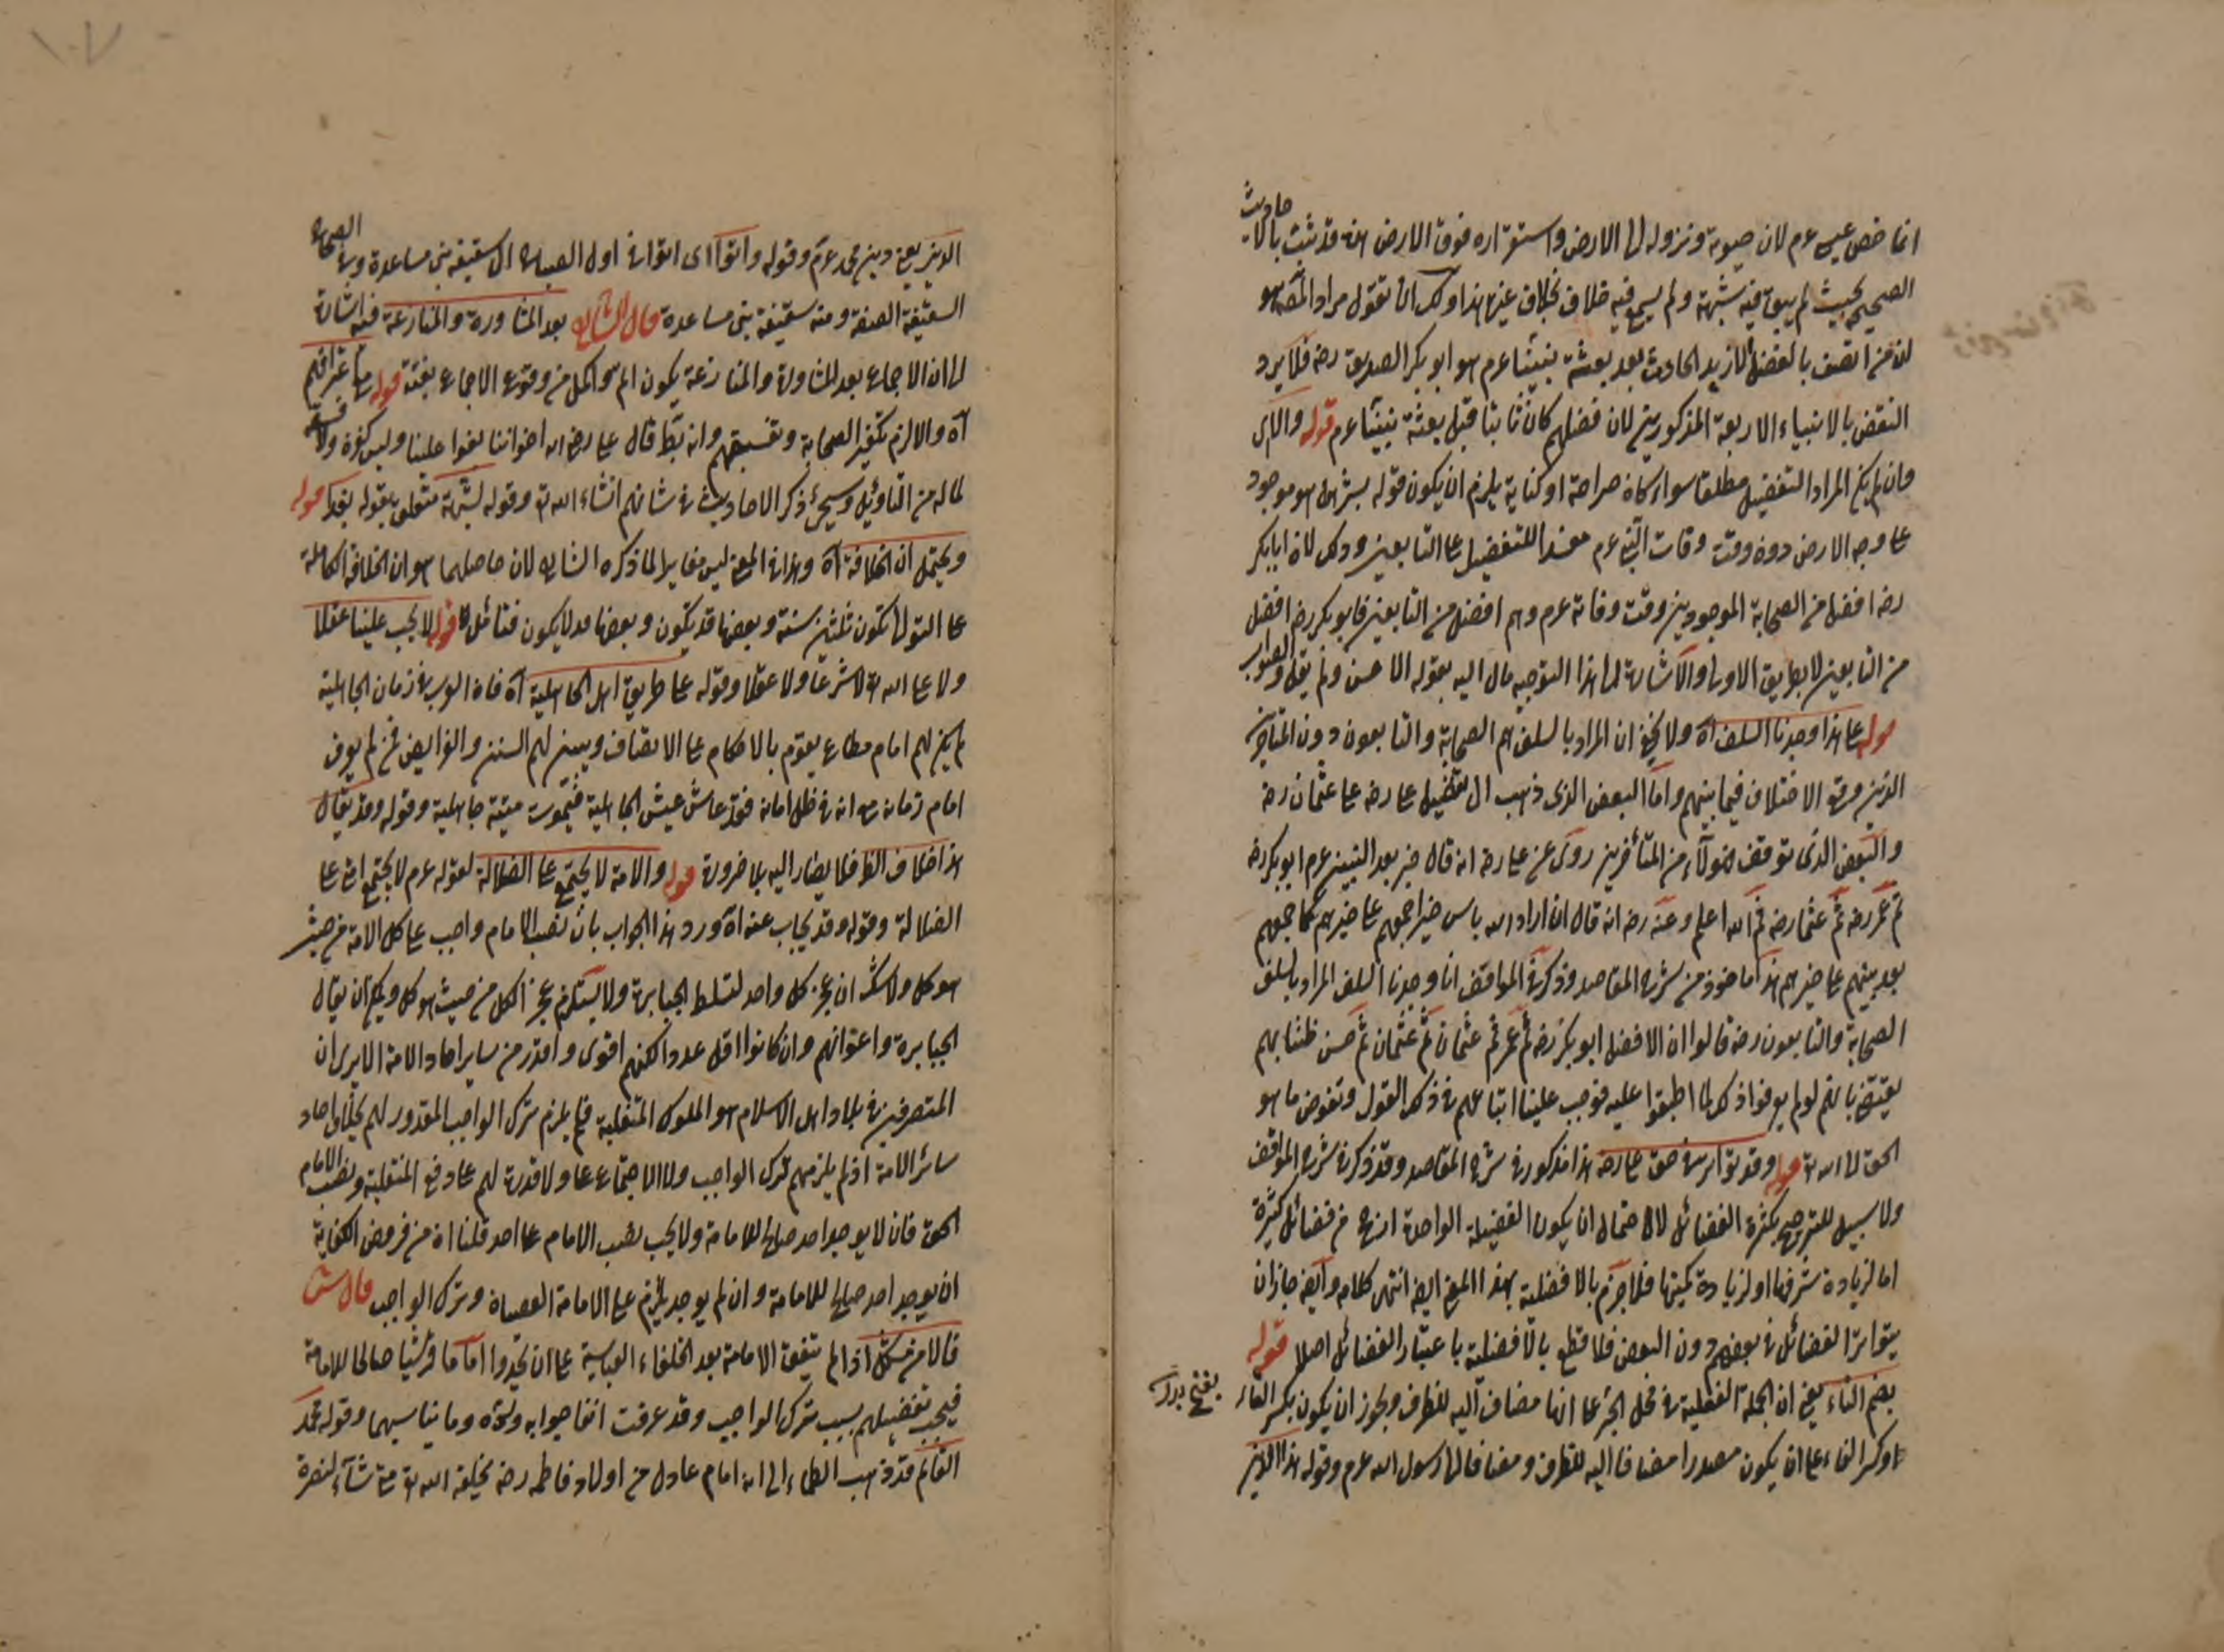 انما خص عيسى عم لان حيوته ونزوله الى الارض واستقراره فوق الارض قد ثبت بالاحاديث
الصحيحة بحيث لم يبق فيه شبهة ولم يسمع فيه خلاف بخلاف غيره هذا ولك ان تقول مراد المص هو
ان من اتصف بالفضل الحادث بعد بعثة نبينا عم هو ابو بكر الصديق رضه فلا يرد
النقض بالانبياء الاربعة المذكورين لان فضلهم كان ثابتا قبل بعثة نبينا عم قوله
وان لم يكن المراد التفضيل مطلقا سواء كان صراحة او كناية يلزم ان يكون قوله بشر هو موجود
على وجه الارض دون وقت وفات النبى عم مفيدا للتفضيل على التابعين وذلك لان ابابكر
رضه افضل من الصحابة الموجودين وقت وفاته عم وهم افضل من التابعين فابو بكر رضه افضل
من التابعين لا بطريق الاولى والاشارة الى هذا التوجيه مال اليه بقوله الاحسن ولم يقل والصواب
قوله على هذا وجدنا السلف اه ولا يخفى ان المراد بالسلف هم الصحابة والتابعون دون المتأخرين
الذين وقع الاختلاف فيما بينهم واما البعض الذى ذهب الى تفضيل على رضه على عثمان رضه
والبعض الذى توقف فهؤلاء من المتأخرين روى عن على رضه انه قال خير بعد النبيين عم ابو بكر رضه
ثم عمر رضه ثم عثمان رضه ثم الله اعلم وعنه رضه انه قال ان اراد الله بالناس خيرا جمعهم على خيرهم كما جمعهم
بعد نبيهم على خيرهم هذا ماخوذ من شرح المقاصد وذكر فى المواقف انا وجدنا السلف المراد بالسلف
الصحابة والتابعون رضه قالوا ان الافضل ابو بكر رضه ثم عمر ثم عثمان ثم حسن ظننا بهم
يقتضى بانهم لو لم يعرفوا ذلك لما اطبقوا عليه فوجب علينا اتباعهم فى ذلك القول وتفويض ما هو
الحق الى الله تع قوله وقد تواتر فى حق على رضه هذا مذكور فى شرح المقاصد وقد ذكر فى شرح المواقف
ولا سبيل للترجيح بكثرة الفضائل لاحتمال ان يكون الفضيلة الواحدة ارجح من فضائل كثيرة
اما لزيادة شرفها او لزيادة كميتها فلا جزم بالافضلية بهذا المعنى ايضا انتهى كلامه وايضا جاز ان
يتواتر الفضائل فى بعضهم دون البعض فلا قطع بالافضلية باعتبار الفضائل اصلا قوله
بضم التاء يعنى ان الجملة الفعلية فى محل الجر على انها مضاف اليه للظرف ويجوز ان يكون بكسر الفاء
او كسر الفاء على ان يكون مصدرا مضافا اليه للظرف ومضافا الى رسول الله عم وقوله هذا الدين
الدين يعنى دين محمد عم وقوله واتوا اى اتوا فى اول الصباح الى سقيفة بنى ساعدة
السقيفة الصفة ومنه سقيفة بنى ساعدة قال الشارح بعد المشاورة والمنازعة فيه اشارة
الى ان الاجماع بعد المشاورة والمنازعة يكون اتم واكمل من وقوع الاجماع بغتة قوله
اه والا لزم تكفير الصحابة وتفسيقهم وانه بط قال على رضه اخواننا بغوا علينا وليس كفرة ولا فسقة
لما له من التأويل وسيجئ ذكر الاحاديث فى شانهم انشاء الله تع وقوله لشبهة متعلق بقوله قوله
ويحتمل ان الخلافة اه وهذا المعنى ليس مغايرا لما ذكره الشارح لان حاصلهما هو ان الخلافة الكاملة
على التوالى تكون ثلثين سنة وبعضها قد يكون وبعضها قد لا يكون فتأمل قوله لا يجب علينا عقلا
ولا على الله تع لا شرعا ولا عقلا وقوله على طريق اهل الجاهلية اه فان العرب فى زمان الجاهلية
لم يكن لهم امام مطاع يقوم بالاحكام على الانصاف ويبين لهم السنن والفرايض فمن لم يعرف
امام زمانه مع انه فى ظل امانه فقد عاش عيش الجاهلية فيموت ميتة جاهلية وقوله وقد يقال
هذا خلاف الظ فلا يصار اليه بلا ضرورة قوله والامة لا يجتمع على الضلالة لقوله عم لا يجتمع امتى على
الضلالة وقوله وقد يجاب عنه اه ورد هذا الجواب بان نصب الامام واجب على كل الامة من حيث
هو كل ولا شك ان عجز كل واحد لتسلط الجبابرة ولا يستلزم عجز الكل من حيث هو كل ويمكن ان يقال
الجبابرة واعوانهم وان كانوا اقل عددا لكنهم اقوى واقدر من ساير احاد الامة الا يرى ان
المتصرفين فى بلاد اهل الاسلام هو الملوك المتغلبة فيلزم ترك الواجب المقدور لهم بخلاف احاد
سائر الامة اذ لم يلزمهم ترك الواجب ولا الاجتماع ولا قدرة لهم على دفع المتغلبة ونصب الامام
الحق فان لا يوجد احد صالح للامامة ولا يجب نصب الامام على احد قلنا انه من فروض الكفاية
ان يوجد احد صالح للامامة وان لم يوجد يلزم على الامامة العصاة وترك الواجب قال الش
فالامر مشكل اذا لم يتفق الامامة بعد الخلفاء العباسية على ان يجدوا اماما قرشيا صالحا للامامة
فيجب تفضيلهم بسبب ترك الواجب وقد عرفت انفا جوابه ونحوه وما يناسبهما وقوله محمد
القائم قد ذهب العلماء الى انه امام عادل من اولاد فاطمه رضه يخلقه الله تع متى شاء لنصرة
١٠٧